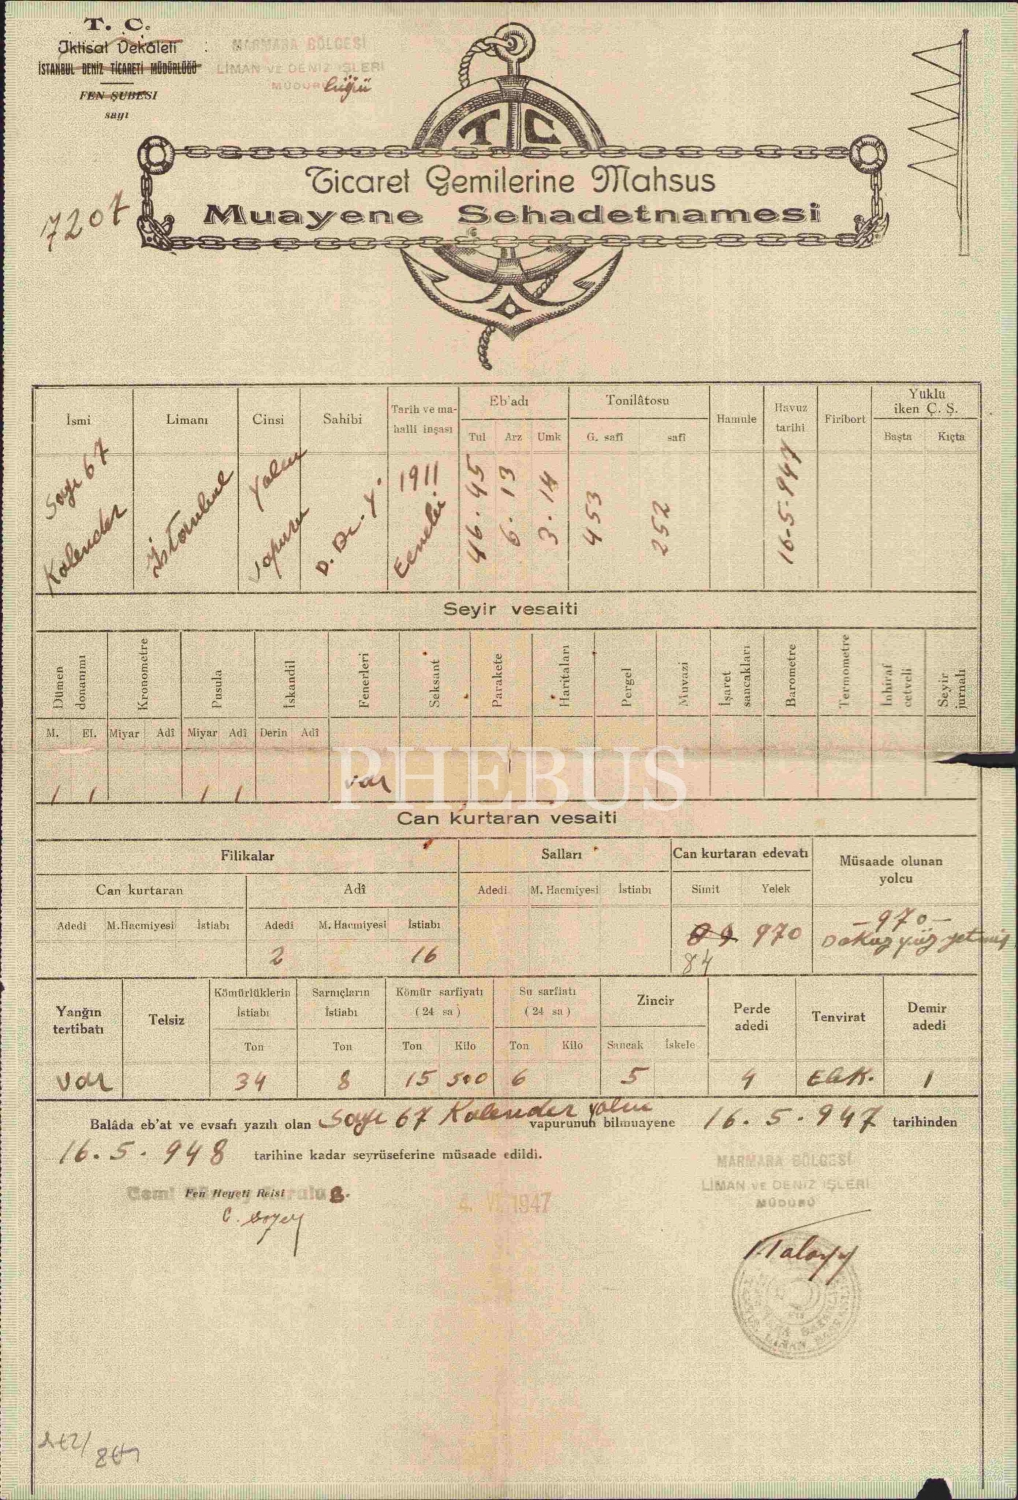 T. C.
İktisat Vekâleti
İSTANBUL DENİZ TİCARETİ MÜDÜRLÜĞÜ
FEN ŞUBESI
sayı
MARMARA BÖLGESİ
LİMAN VE DENİZ İŞLERİ
MÜDÜRLÜĞÜ
7207
T C
Ticaret Gemilerine Mahsus
Muayene Şehadetnamesi
İsmi Limanı Cinsi Sahibi Tarih ve mahalli inşası Eb'adı Tonilâtosu Hamule Havuz tarihi Firibort Yuklu iken Ç. Ş.
Tul Arz Umk G. safi safi Başta Kıçta
Sayı 67 Kalender İstanbul Yolcu vapuru D. D. Y. 1911 Ecnebi 46.45 6.13 3.14 453 252 16-5-947
Seyir vesaiti
Dümen donanımı Kronometre Pusula İskandil Fenerleri Seksant Parakete Haritaları Pergel Muvazi İşaret sancakları Barometre Termometre İnhiraf cetveli Seyir jurnalı
M. El. Miyar Adî Miyar Adî Derin Adî
1 1 1 1 var
PHEBUS
Can kurtaran vesaiti
Filikalar Salları Can kurtaran edevatı Müsaade olunan yolcu
Can kurtaran Adî Adedi M. Hacmiyesi İstiabı Simit Yelek
Adedi M. Hacmiyesi İstiabı Adedi M. Hacmiyesi İstiabı
2 16 84 970 -970- Dokuz yüz yetmiş
Yangın tertibatı Telsiz Kömürlüklerin İstiabı Sarnıçların İstiabı Kömür sarfiyatı (24 sa) Su sarfiatı (24 sa) Zincir Perde adedi Tenvirat Demir adedi
Ton Ton Ton Kilo Ton Kilo Sancak İskele
var 34 8 15 500 6 5 4 Elek. 1
Balâda eb'at ve evsafı yazılı olan Sayı 67 Kalender yolcu vapurunun bilmuayene 16.5.947 tarihinden
16.5.948 tarihine kadar seyrüseferine müsaade edildi.
Fen Heyeti Reisi
4 VI 1947
MARMARA BÖLGESİ
LİMAN VE DENİZ İŞLERİ
MÜDÜRÜ